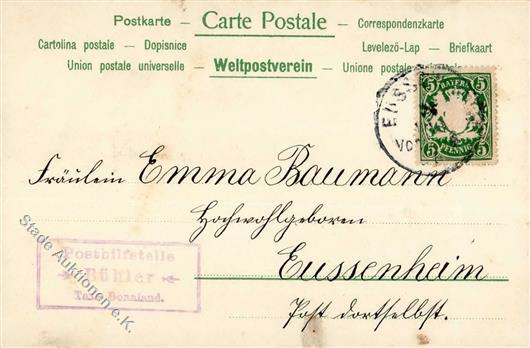 Postkarte – Carte Postale – Correspondenzkarte
Cartolina postale – Dopisnice
Levelezö-Lap – Briefkaart
Union postale universelle – Weltpostverein – Unione postale
5 BAYERN 5
5 PFENNIG 5
EUSS
Fräulein Emma Baumann
Hochwohlgeboren
Eussenheim
Post dortselbst.
Posthilfstelle
Bühler
Taxe Sonnland.
Stade Auktionen e.K.